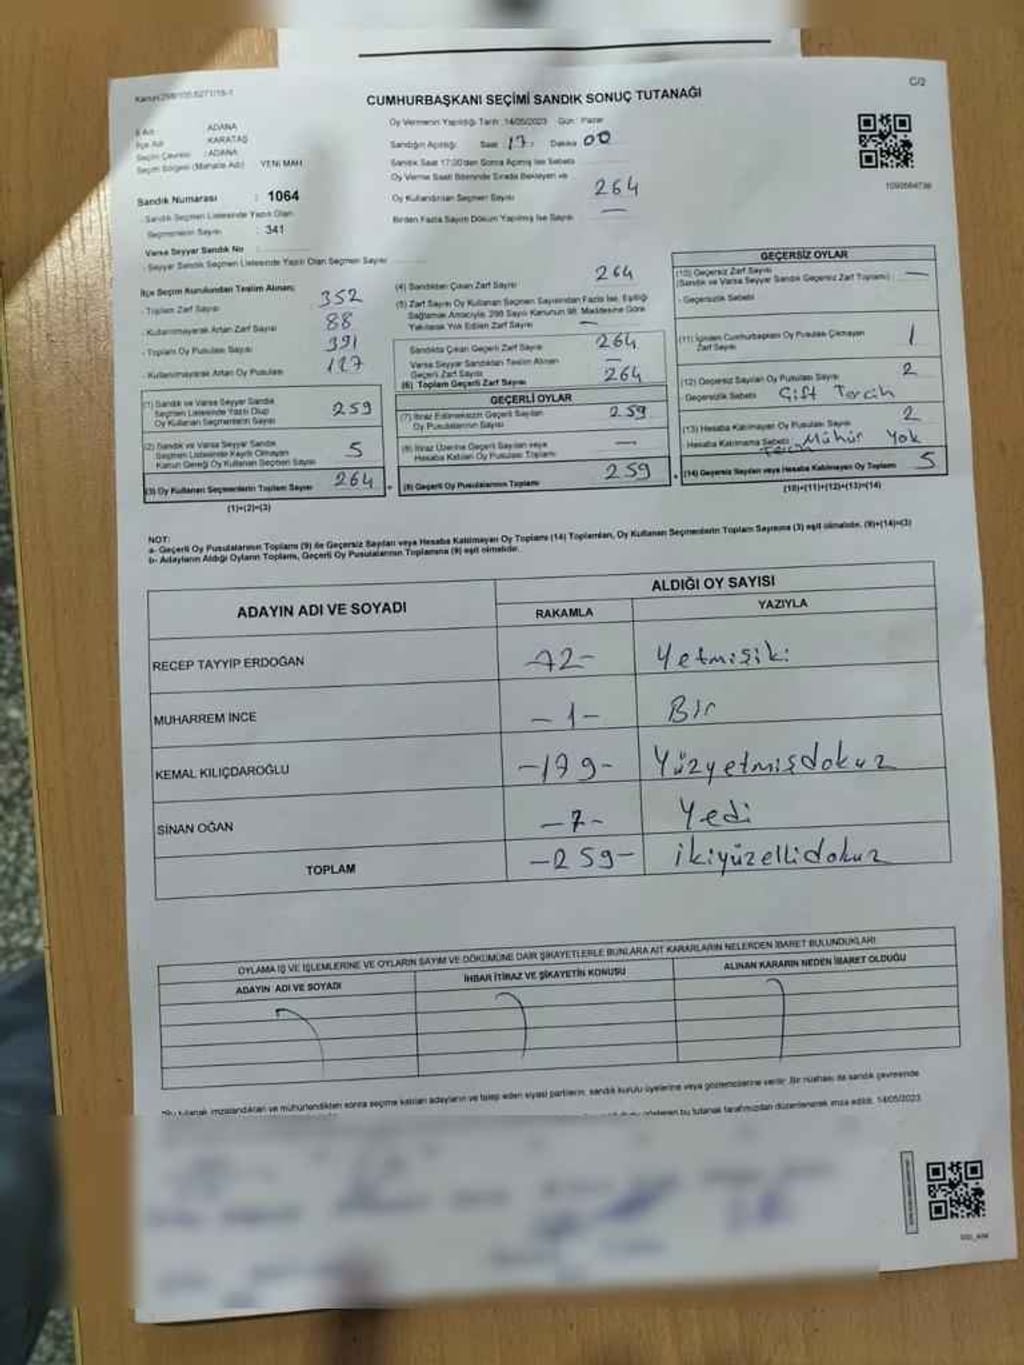 C/2
CUMHURBAŞKANI SEÇİMİ SANDIK SONUÇ TUTANAĞI
İl Adı : ADANA
İlçe Adı : KARATAŞ
Seçim Çevresi : ADANA
Seçim Bölgesi (Mahalle Adı) : YENİ MAH
Sandık Numarası : 1064
Sandık Seçmen Listesinde Yazılı Olan
Seçmenlerin Sayısı : 341
Varsa Seyyar Sandık No :
Seyyar Sandık Seçmen Listesinde Yazılı Olan Seçmen Sayısı
Oy Vermenin Yapıldığı Tarih : 14/05/2023 Gün : Pazar
Sandığın Açıldığı Saat : 17 : Dakika 00
Sandık Saat 17:00'den Sonra Açılmış İse Sebebi
Oy Verme Saati Bitiminde Sırada Bekleyen ve
Oy Kullandırılan Seçmen Sayısı 264
Birden Fazla Sayım Döküm Yapılmış İse Sayısı —
1090564736
İlçe Seçim Kurulundan Teslim Alınan;
- Toplam Zarf Sayısı 352
- Kullanılmayarak Artan Zarf Sayısı 88
- Toplam Oy Pusulası Sayısı 391
- Kullanılmayarak Artan Oy Pusulası 127
(1) Sandık ve Varsa Seyyar Sandık
Seçmen Listesinde Yazılı Olup
Oy Kullanan Seçmenlerin Sayısı 259
(2) Sandık ve Varsa Seyyar Sandık
Seçmen Listesinde Kayıtlı Olmayan
Kanun Gereği Oy Kullanan Seçmen Sayısı 5
(3) Oy Kullanan Seçmenlerin Toplam Sayısı 264
(1)+(2)=(3)
(4) Sandıktan Çıkan Zarf Sayısı 264
(5) Zarf Sayısı Oy Kullanan Seçmen Sayısından Fazla İse, Eşitliği
Sağlamak Amacıyla, 298 Sayılı Kanunun 98. Maddesine Göre
Yakılarak Yok Edilen Zarf Sayısı —
Sandıkta Çıkan Geçerli Zarf Sayısı 264
Varsa Seyyar Sandıktan Teslim Alınan
Geçerli Zarf Sayısı —
(6) Toplam Geçerli Zarf Sayısı 264
GEÇERLİ OYLAR
(7) İtiraz Edilmeksizin Geçerli Sayılan
Oy Pusulalarının Sayısı 259
(8) İtiraz Üzerine Geçerli Sayılan veya
Hesaba Katılan Oy Pusulası Toplamı —
(9) Geçerli Oy Pusulalarının Toplamı 259
GEÇERSİZ OYLAR
(10) Geçersiz Zarf Sayısı
(Sandık ve Varsa Seyyar Sandık Geçersiz Zarf Toplamı) —
- Geçersizlik Sebebi
(11) İçinden Cumhurbaşkanı Oy Pusulası Çıkmayan
Zarf Sayısı 1
(12) Geçersiz Sayılan Oy Pusulası Sayısı 2
Geçersizlik Sebebi Çift Tercih
(13) Hesaba Katılmayan Oy Pusulası Sayısı 2
Hesaba Katılmama Sebebi Mühür Yok
(14) Geçersiz Sayılan veya Hesaba Katılmayan Oy Toplamı 5
(10)+(11)+(12)+(13)=(14)
NOT:
a- Geçerli Oy Pusulalarının Toplamı (9) ile Geçersiz Sayılan veya Hesaba Katılmayan Oy Toplamı (14) Toplamları, Oy Kullanan Seçmenlerin Toplam Sayısına (3) eşit olmalıdır. (9)+(14)=(3)
b- Adayların Aldığı Oyların Toplamı, Geçerli Oy Pusulalarının Toplamına (9) eşit olmalıdır.
ADAYIN ADI VE SOYADI ALDIĞI OY SAYISI
RAKAMLA YAZIYLA
RECEP TAYYİP ERDOĞAN 72- Yetmişiki
MUHARREM İNCE -1- Bir
KEMAL KILIÇDAROĞLU -179- Yüzyetmişdokuz
SİNAN OĞAN -7- Yedi
TOPLAM -259- ikiyüzellidokuz
OYLAMA İŞ VE İŞLEMLERİNE VE OYLARIN SAYIM VE DÖKÜMÜNE DAİR ŞİKAYETLERLE BUNLARA AİT KARARLARIN NELERDEN İBARET BULUNDUKLARI
ADAYIN ADI VE SOYADI İHBAR İTİRAZ VE ŞİKAYETİN KONUSU ALINAN KARARIN NEDEN İBARET OLDUĞU
*Bu tutanak imzalandıktan ve mühürlendikten sonra seçime katılan adayların ve talep eden siyasi partilerin, sandık kurulu üyelerine veya gözlemcilerine verilir. Bir nüshası da sandık çevresinde
gösteren bu tutanak tarafımızdan düzenlenerek imza edildi. 14/05/2023